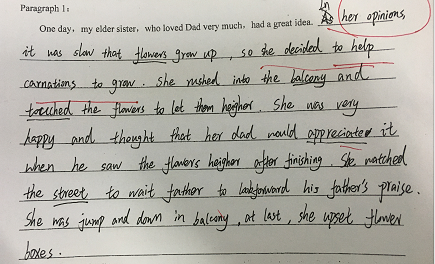 Paragraph 1:
One day, my elder sister, who loved Dad very much, had a great idea. In her opinions,
it was slow that flowers grow up, so she decided to help
carnations to grow. She rushed into the balcony and
touched the flowers to let them heigher. She was very
happy and thought that her dad would appreciated it
when he saw the flowers heigher after finishing. She watched
the street to wait father to lookforward his father's praise.
She was jump and down in balcony, at last, she upset flower
boxes.